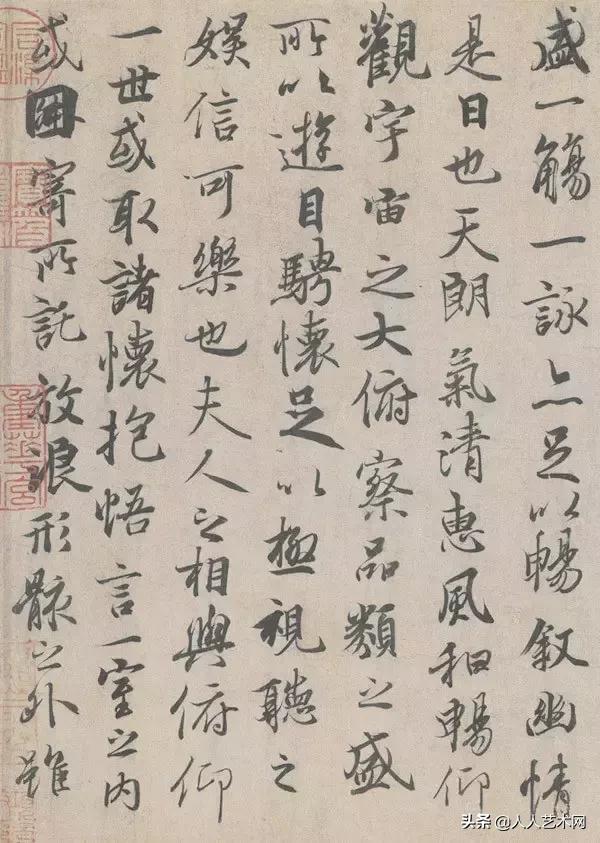 盛一觴一詠亦足以暢敘幽情
是日也天朗氣清惠風和暢仰
觀宇宙之大俯察品類之盛
所以遊目騁懷足以極視聽之
娛信可樂也夫人之相與俯仰
一世或取諸懷抱悟言一室之內
或因寄所託放浪形骸之外雖
头条 @人人艺术网